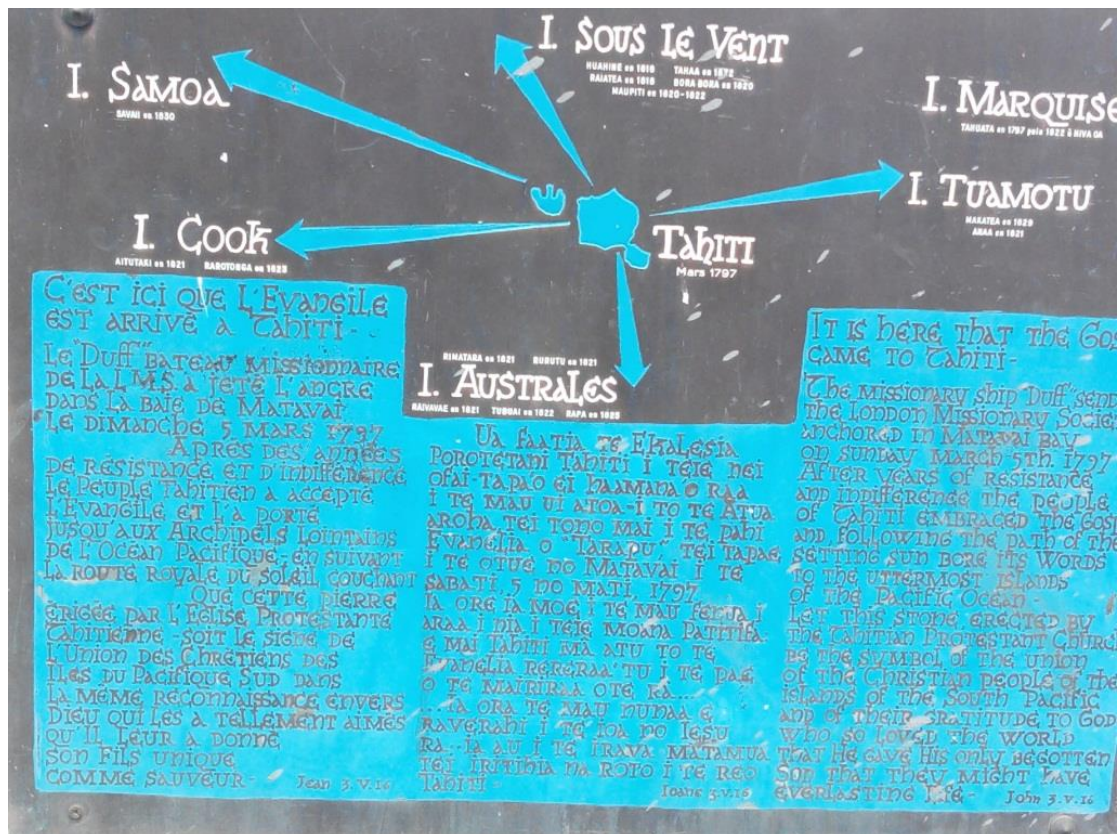 I. SOUS LE VENT
HUAHINE en 1818 TAHAA en 1822
RAIATEA en 1818 BORA BORA en 1820
MAUPITI en 1820-1822
I. SAMOA
SAVAII en 1830
I. MARQUISE
TAHUATA en 1797 puis 1822 à HIVA OA
I. TUAMOTU
MAKATEA en 1829
ANAA en 1821
I. COOK
AITUTAKI en 1821 RAROTONGA en 1823
TAHITI
Mars 1797
RIMATARA en 1821 RURUTU en 1821
I. AUSTRALES
RAIVAVAE en 1821 TUBUAI en 1822 RAPA en 1825
C'EST ICI QUE L'EVANGILE
EST ARRIVÉ A TAHITI-
LE "DUFF" BATEAU MISSIONNAIRE
DE LA L.M.S. A JETÉ L'ANCRE
DANS LA BAIE DE MATAVAI
LE DIMANCHE 5 MARS 1797
APRES DES ANNÉES
DE RÉSISTANCE ET D'INDIFFÉRENCE
LE PEUPLE TAHITIEN A ACCEPTÉ
L'EVANGILE ET L'A PORTÉ
JUSQU'AUX ARCHIPELS LOINTAINS
DE L'OCEAN PACIFIQUE-EN SUIVANT
LA ROUTE ROYALE DU SOLEIL COUCHANT
QUE CETTE PIERRE
ÉRIGÉE PAR L'ÉGLISE PROTESTANTE
TAHITIENNE-SOIT LE SIGNE DE
L'UNION DES CHRÉTIENS DES
ILES DU PACIFIQUE SUD DANS
LA MÊME RECONNAISSANCE ENVERS
DIEU QUI LES A TELLEMENT AIMÉS
QU'IL LEUR A DONNÉ
SON FILS UNIQUE
COMME SAUVEUR- Jean 3.V.16
UA FAATIA TE EKALESIA
POROTETANI TAHITI I TEIE NEI
OFAI-TAPA'O EI HAAMANA'O RAA
I TE MAU UI ATOA-I TO TE ATUA
AROHA, TEI TONO MAI I TE PAHI
EVANELIA O "TARAPU", TEI TAPAE
I TE OTUE NO MATAVAI I TE
SABATI, 5 NO MATI, 1797
IA ORE IA MOE, I TE MAU FENUA I
ARAA I NIA I TEIE MOANA PATITIFA-
E MAI TAHITI MA ATU TO TE
EVANELIA RERERAA'TU I TE PAE
O TE MAIRIRAA OTE RA...
...IA ORA TE MAU NUNAA E
RAVERAHI I TE IOA NO IESU
RA..IA AU I TE IRAVA MATAMUA
TEI IRITIHIA NA ROTO I TE REO
TAHITI- Ioane 3.V.16
IT IS HERE THAT THE GOS
CAME TO TAHITI-
THE MISSIONARY SHIP "DUFF" SEN
THE LONDON MISSIONARY SOCIE
ANCHORED IN MATAVAI BAY
ON SUNDAY MARCH 5TH. 1797
AFTER YEARS OF RESISTANCE
AND INDIFFERENCE THE PEOPLE
OF TAHITI EMBRACED THE GOS
AND, FOLLOWING THE PATH OF THE
SETTING SUN BORE ITS WORDS
TO THE UTTERMOST ISLANDS
OF THE PACIFIC OCEAN-
LET THIS STONE ERECTED BY
THE TAHITIAN PROTESTANT CHURC
BE THE SYMBOL OF THE UNION
OF THE CHRISTIAN PEOPLE OF THE
ISLANDS OF THE SOUTH PACIFIC
AND OF THEIR GRATITUDE TO GOD
WHO SO LOVED THE WORLD
THAT HE GAVE HIS ONLY BEGOTTEN
SON THAT THEY MIGHT HAVE
EVERLASTING LIFE- John 3.V.16